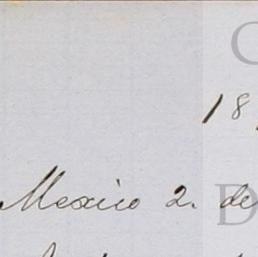 18
Mexico 2. de